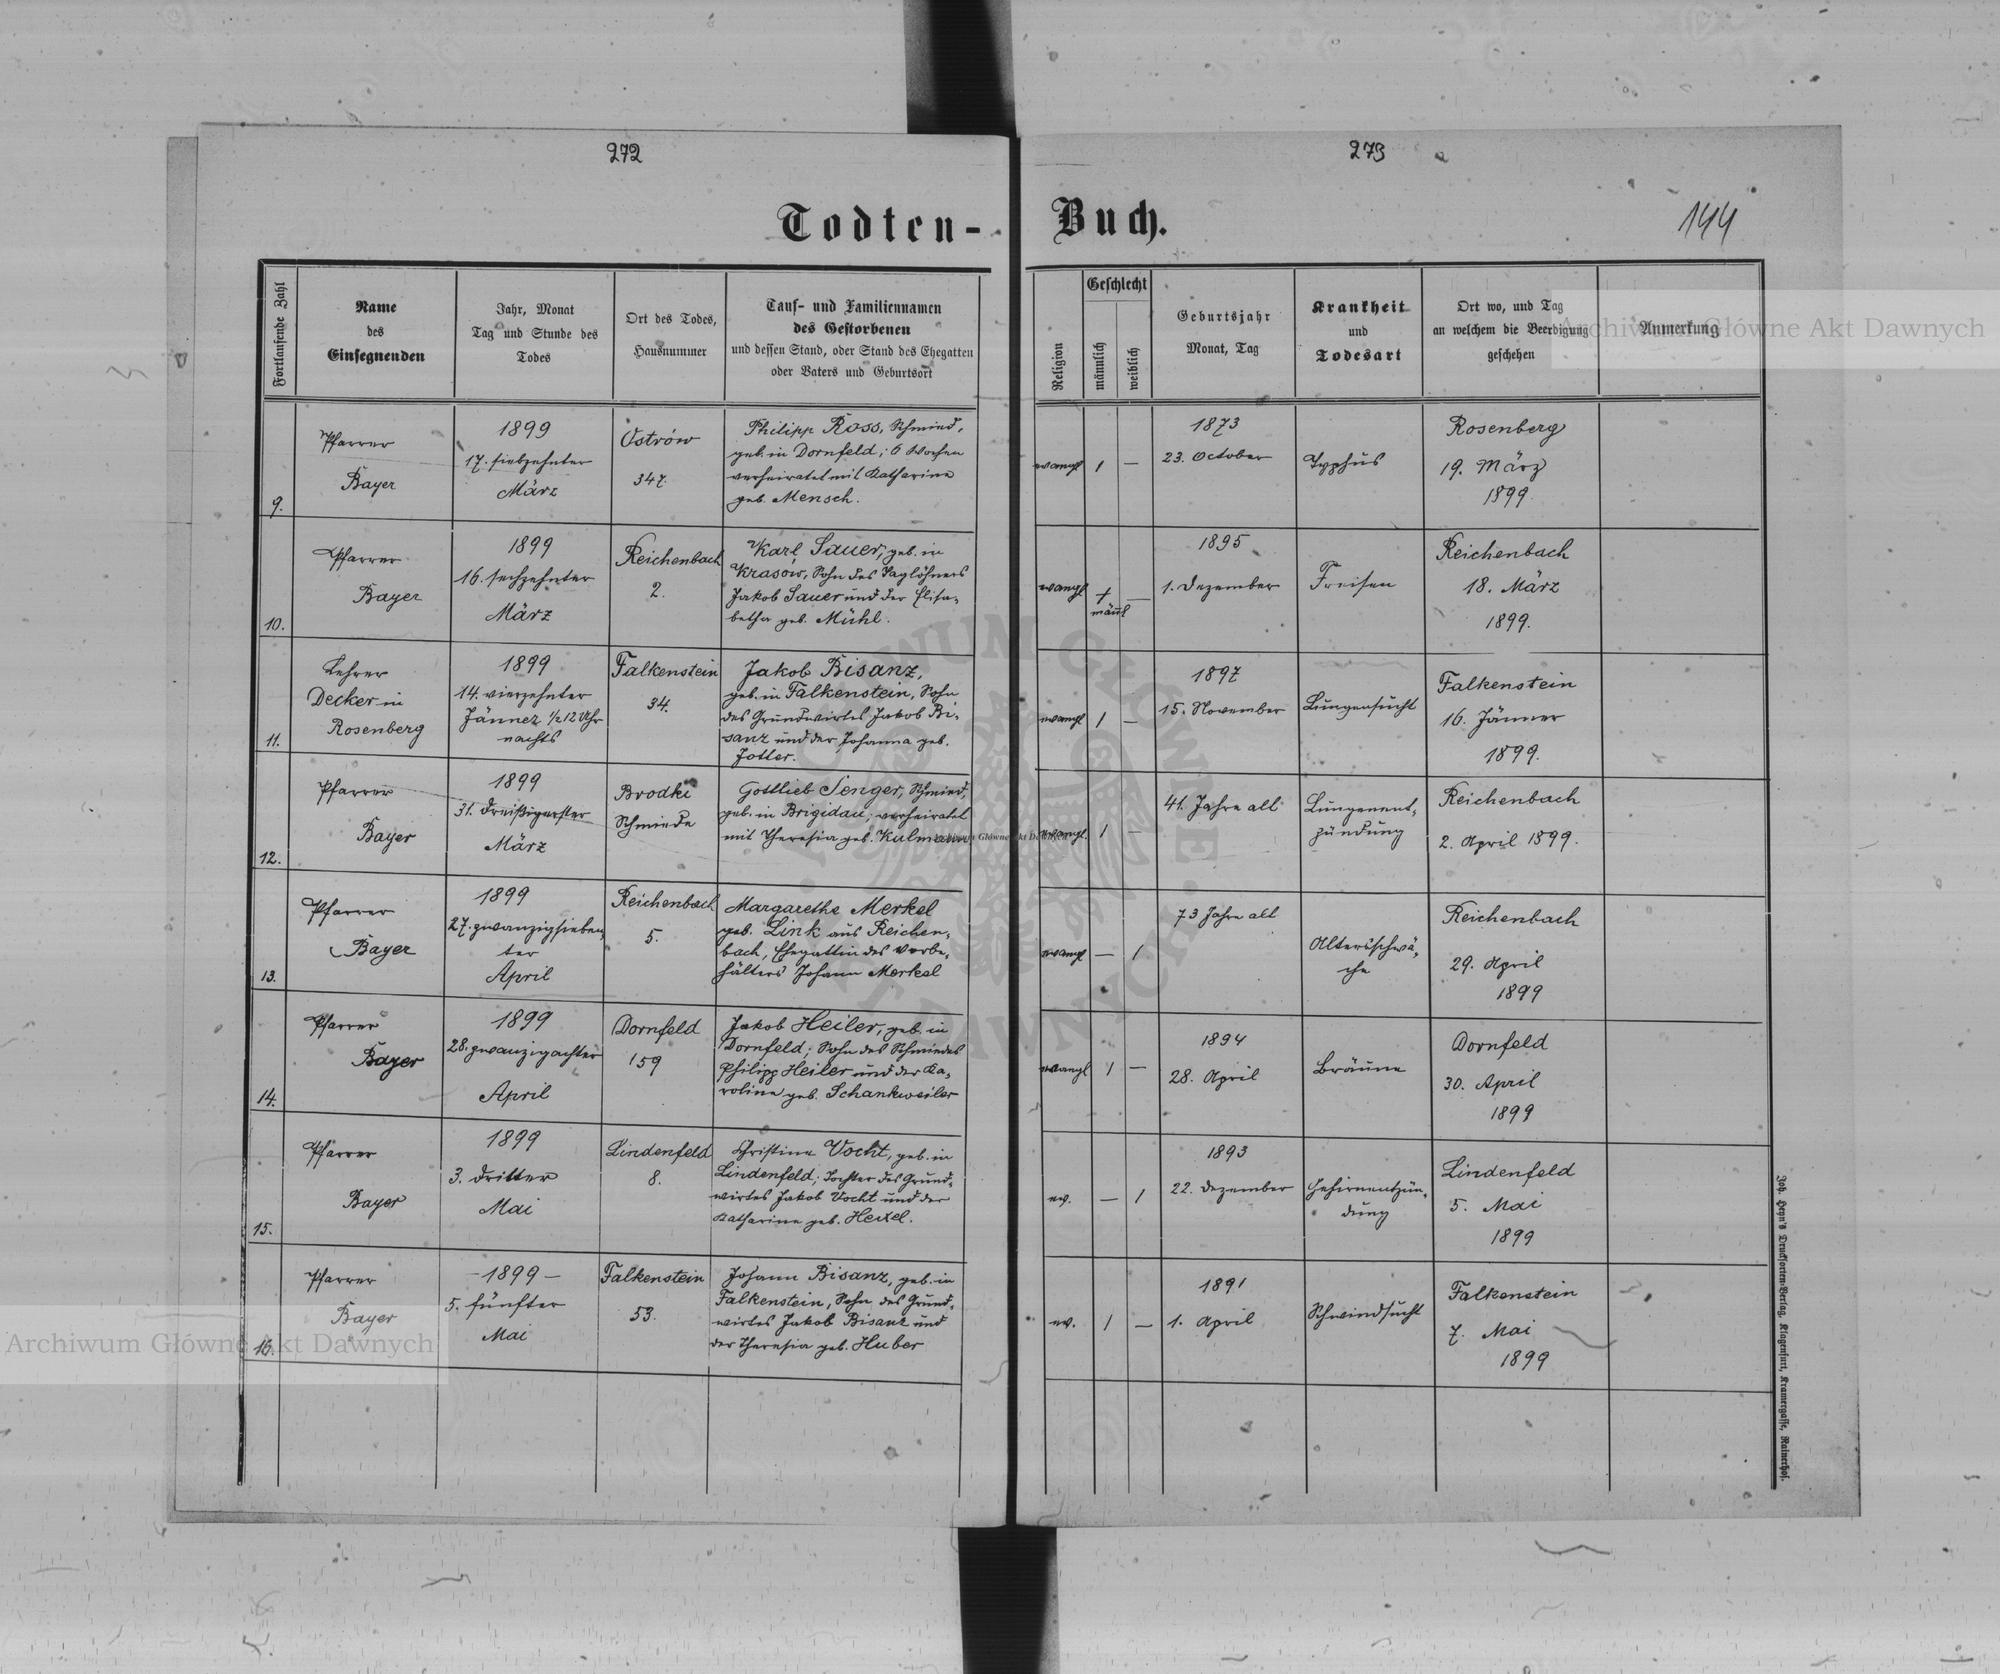 272
273
Todten-
Buch.
144
Fortlaufende Zahl
Name
des
Einsegnenden
Jahr, Monat
Tag und Stunde des
Todes
Ort des Todes,
Hausnummer
Tauf- und Familiennamen
des Gestorbenen
und dessen Stand, oder Stand des Ehegatten
oder Vaters und Geburtsort
Religion
Geschlecht
männlich
weiblich
Geburtsjahr
Monat, Tag
Krankheit
und
Todesart
Ort wo, und Tag
an welchem die Beerdigung
geschehen
Anmerkung
9.
Pfarrer
Bayer
1899
17. siebzehnter
März
Ostrów
347.
Philipp Ross, Schmied,
geb. in Dornfeld; 6 Wochen
verheiratet mit Katharina
geb. Mensch.
evangl
1
—
1873
23. October
Typhus
Rosenberg
19. März
1899.
10.
Pfarrer
Bayer
1899
16. sechzehnter
März
Reichenbach
2.
Karl Sauer, geb. in
Krasów, Sohn des Taglöhners
Jakob Sauer und der Elisa-
betha geb. Mühl.
evangl
+
männl
—
1895
1. Dezember
Fraisen
Reichenbach
18. März
1899.
11.
Lehrer
Decker in
Rosenberg
1899
14. vierzehnter
Jänner ½12 Uhr
nachts
Falkenstein
34.
Jakob Bisanz,
geb. in Falkenstein, Sohn
des Grundwirtes Jakob Bi-
sanz und der Johanna geb.
Jotter.
evangl
1
—
1897
15. November
Lungensucht
Falkenstein
16. Jänner
1899.
12.
Pfarrer
Bayer
1899
31. dreißigerster
März
Brodki
Schmiede
Gottlieb Senger, Schmied,
geb. in Brigidau; verheiratet
mit Theresia geb. Kulmann
evangl.
1
—
41. Jahre alt
Lungenent-
zündung
Reichenbach
2. April 1899.
13.
Pfarrer
Bayer
1899
27. zwanzigsieben-
ter
April
Reichenbach
5.
Margarethe Merkel
geb. Link aus Reichen-
bach, Ehegattin des Vorbe-
hälters Johann Merkel
evangl
—
1
73 Jahre alt
Altersschwä-
che
Reichenbach
29. April
1899
14.
Pfarrer
Bayer
1899
28. zwanzigachter
April
Dornfeld
159
Jakob Heiler, geb. in
Dornfeld; Sohn des Schmiedes
Philipp Heiler und der Ka-
rolina geb. Schankweiler
evangl
1
—
1894
28. April
Bräune
Dornfeld
30. April
1899
15.
Pfarrer
Bayer
1899
3. dritter
Mai
Lindenfeld
8.
Christina Vocht, geb. in
Lindenfeld; Tochter des Grund-
wirtes Jakob Vocht und der
Katharina geb. Hexel.
ev.
—
1
1893
22. Dezember
Gehirnentzün-
dung
Lindenfeld
5. Mai
1899
16.
Pfarrer
Bayer
—1899—
5. fünfter
Mai
Falkenstein
53.
Johann Bisanz, geb. in
Falkenstein, Sohn des Grund-
wirtes Jakob Bisanz und
der Theresia geb. Huber
ev.
1
—
1891
1. April
Schwindsucht
Falkenstein
7. Mai
1899
Joh. Heyn's Drucksorten-Verlag, Klagenfurt, Kramergasse, Rainerhof.
Archiwum Główne Akt Dawnych
Archiwum Główne Akt Dawnych
Archiwum Główne Akt Dawnych